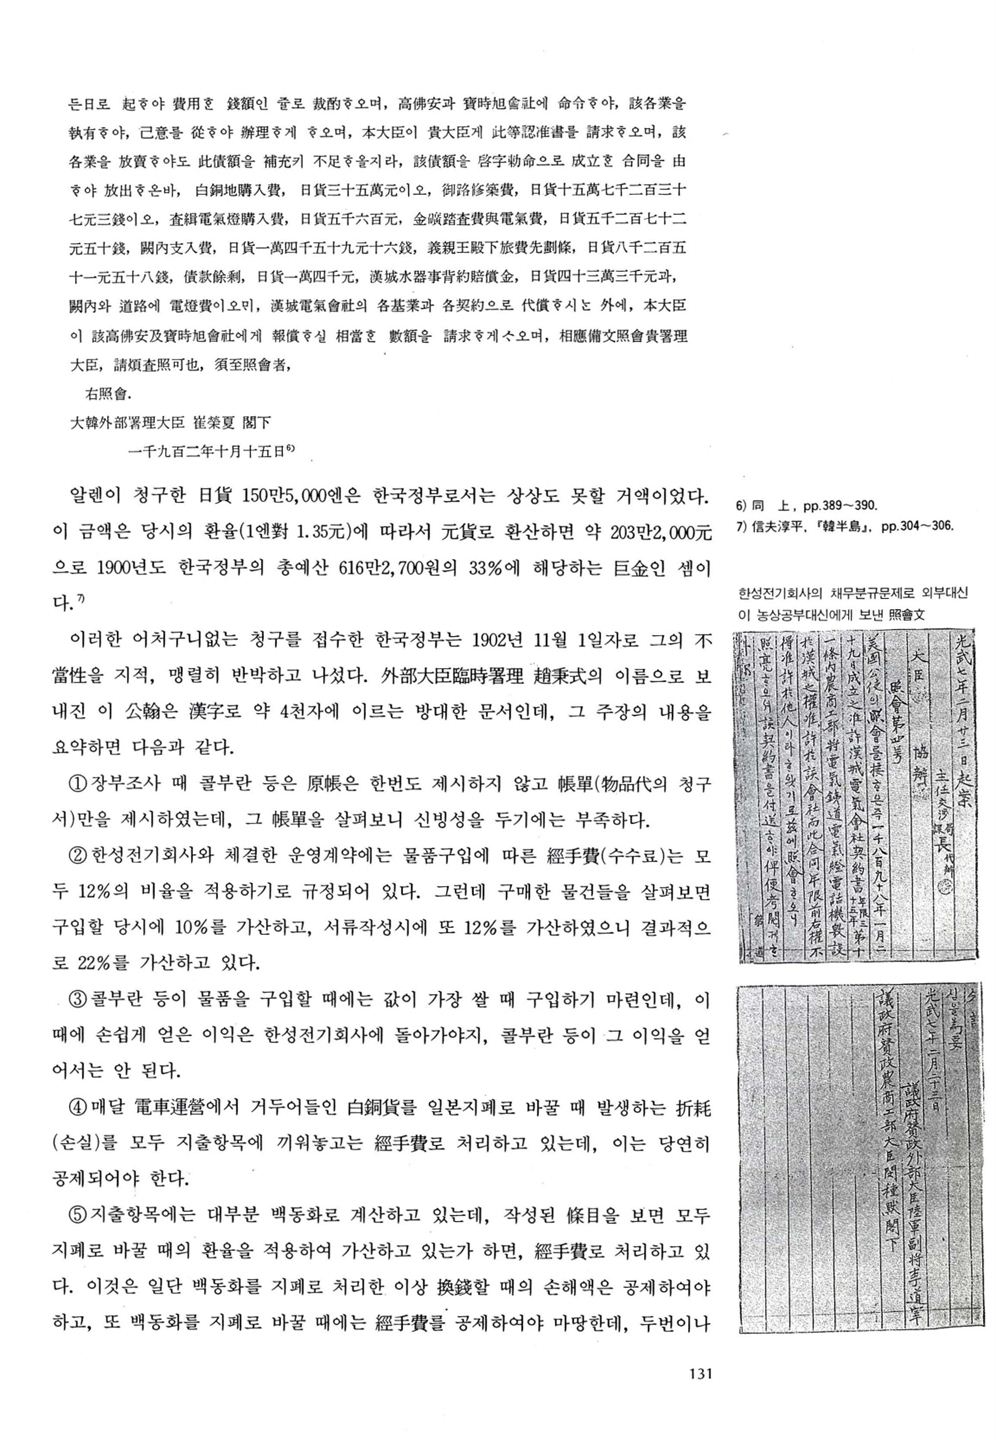 든日로 起ᄒᆞ야 費用ᄒᆞᆫ 錢額인 줄로 裁酌ᄒᆞ오며, 高佛安과 寶時旭會社에 命令ᄒᆞ야, 該各業을
執有ᄒᆞ야, 己意를 從ᄒᆞ야 辦理ᄒᆞ게 ᄒᆞ오며, 本大臣이 貴大臣게 此等認准書를 請求ᄒᆞ오며, 該
各業을 放賣ᄒᆞ야도 此債額을 補充키 不足ᄒᆞ올지라, 該債額을 啓字勅命으로 成立ᄒᆞᆫ 合同을 由
ᄒᆞ야 放出ᄒᆞ온바, 白銅地購入費, 日貨三十五萬元이오, 御路修築費, 日貨十五萬七千二百三十
七元三錢이오, 査緝電氣燈購入費, 日貨五千六百元, 金礦踏査費與電氣費, 日貨五千二百七十二
元五十錢, 闕內支入費, 日貨一萬四千五十九元十六錢, 義親王殿下旅費先劃條, 日貨八千二百五
十一元五十八錢, 債款餘剩, 日貨一萬四千元, 漢城水器事背約賠償金, 日貨四十三萬三千元과,
闕內와 道路에 電燈費이오미, 漢城電氣會社의 各基業과 各契約으로 代償ᄒᆞ시ᄂᆞᆫ 外에, 本大臣
이 該高佛安及寶時旭會社에게 報償ᄒᆞ실 相當ᄒᆞᆫ 數額을 請求ᄒᆞ게ᄉᆞ오며, 相應備文照會貴署理
大臣, 請煩査照可也, 須至照會者,
右照會.
大韓外部署理大臣 崔榮夏 閣下
一千九百二年十月十五日⁶⁾
알렌이 청구한 日貨 150만5,000엔은 한국정부로서는 상상도 못할 거액이었다.
이 금액은 당시의 환율(1엔對 1.35元)에 따라서 元貨로 환산하면 약 203만2,000元
으로 1900년도 한국정부의 총예산 616만2,700원의 33%에 해당하는 巨金인 셈이
다.⁷⁾
이러한 어처구니없는 청구를 접수한 한국정부는 1902년 11월 1일자로 그의 不
當性을 지적, 맹렬히 반박하고 나섰다. 外部大臣臨時署理 趙秉式의 이름으로 보
내진 이 公翰은 漢字로 약 4천자에 이르는 방대한 문서인데, 그 주장의 내용을
요약하면 다음과 같다.
①장부조사 때 콜부란 등은 原帳은 한번도 제시하지 않고 帳單(物品代의 청구
서)만을 제시하였는데, 그 帳單을 살펴보니 신빙성을 두기에는 부족하다.
②한성전기회사와 체결한 운영계약에는 물품구입에 따른 經手費(수수료)는 모
두 12%의 비율을 적용하기로 규정되어 있다. 그런데 구매한 물건들을 살펴보면
구입할 당시에 10%를 가산하고, 서류작성시에 또 12%를 가산하였으니 결과적으
로 22%를 가산하고 있다.
③콜부란 등이 물품을 구입할 때에는 값이 가장 쌀 때 구입하기 마련인데, 이
때에 손쉽게 얻은 이익은 한성전기회사에 돌아가야지, 콜부란 등이 그 이익을 얻
어서는 안 된다.
④매달 電車運營에서 거두어들인 白銅貨를 일본지폐로 바꿀 때 발생하는 折耗
(손실)를 모두 지출항목에 끼워놓고는 經手費로 처리하고 있는데, 이는 당연히
공제되어야 한다.
⑤지출항목에는 대부분 백동화로 계산하고 있는데, 작성된 條目을 보면 모두
지폐로 바꿀 때의 환율을 적용하여 가산하고 있는가 하면, 經手費로 처리하고 있
다. 이것은 일단 백동화를 지폐로 처리한 이상 換錢할 때의 손해액은 공제하여야
하고, 또 백동화를 지폐로 바꿀 때에는 經手費를 공제하여야 마땅한데, 두번이나
6) 同 上, pp.389~390.
7) 信夫淳平, 『韓半島』, pp.304~306.
한성전기회사의 채무분규문제로 외부대신
이 농상공부대신에게 보낸 照會文
光武七年二月廿三日起案
大臣 協辦 主任交涉局課長代辦
照會第四号
美國公使의 照會를 接ᄒᆞ온즉 一千八百九十八年一月二
十九日成立之准許漢城電氣會社契約書 第十
一條內農商工部將電氣鐵道電氣燈電話機敷設
於漢城之權准許於該會社而此合同年限前右權不
得准許於他人이라
光武七年二月二十三日
議政府贊政外部大臣陸軍副將李道宰
議政府贊政農商工部大臣閔種默閣下
131